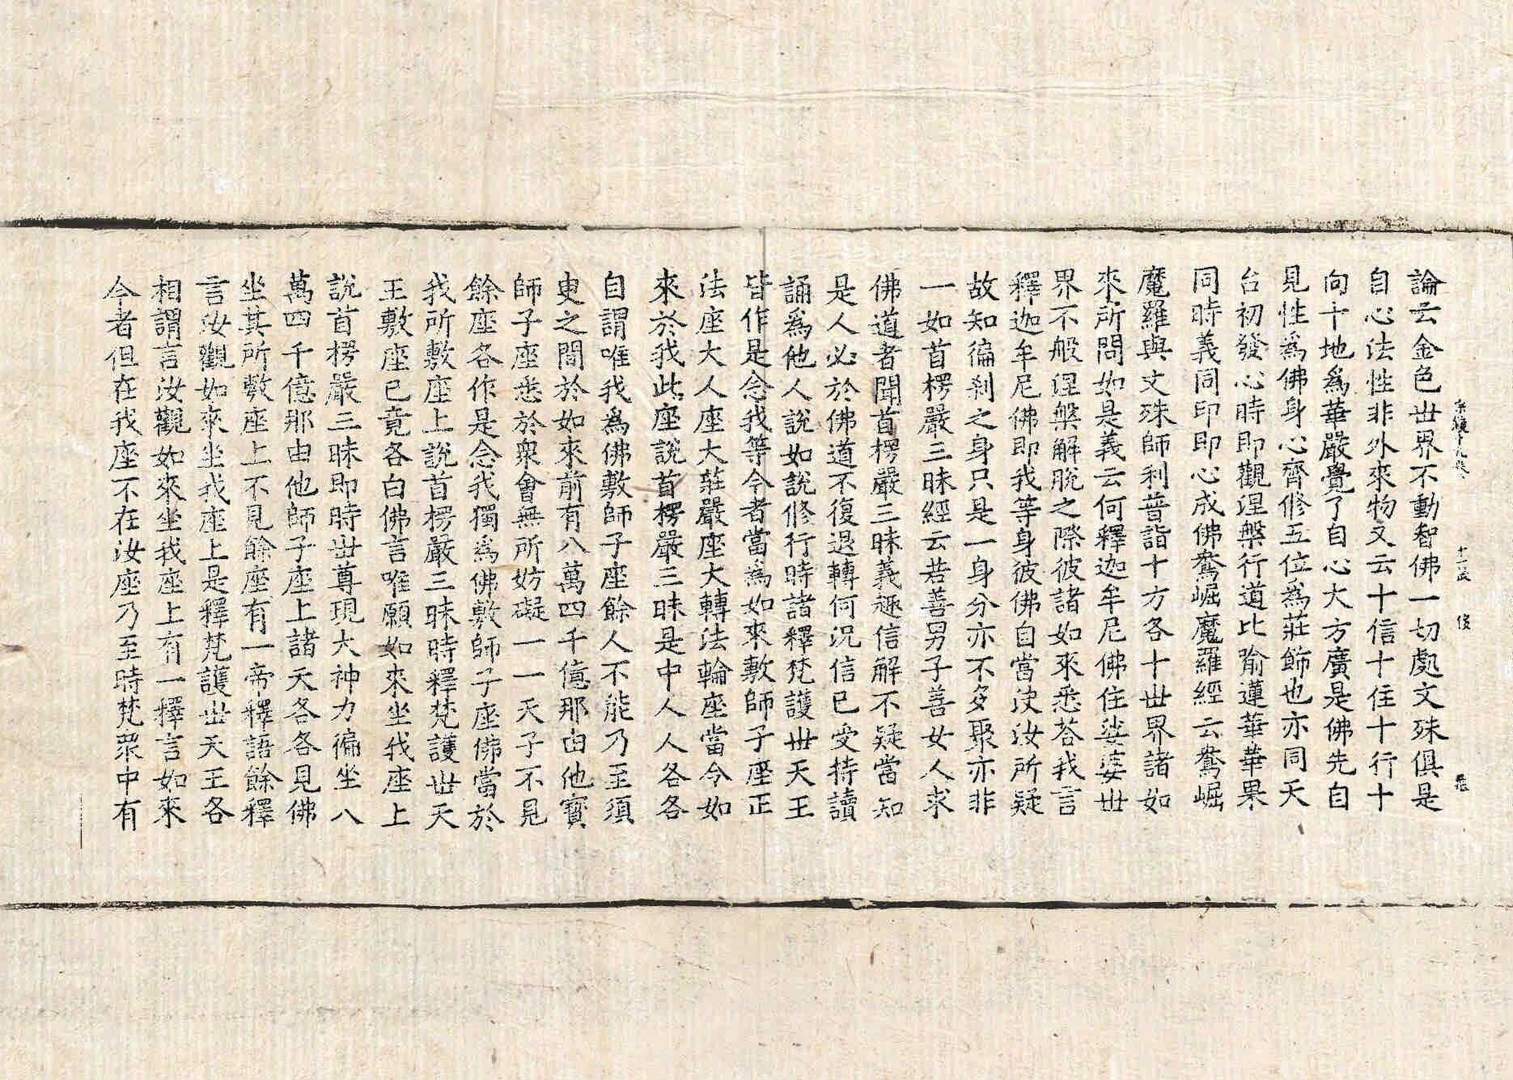 論云金色世界不動智佛一切處文殊俱是
自心法性非外來物又云十信十住十行十
向十地爲華嚴覺了自心大方廣是佛先自
見性爲佛身心齊修五位爲莊飾也亦同天
台初發心時即觀涅槃行道比喻蓮華華果
同時義同印即心成佛鴦崛魔羅經云鴦崛
魔羅與文殊師利普詣十方各十世界諸如
來所問如是義云何釋迦牟尼佛住娑婆世
界不般涅槃解脫之際彼諸如來悉荅我言
釋迦牟尼佛即我等身彼佛自當決汝所疑
故知徧刹之身只是一身分亦不多聚亦非
一如首楞嚴三昧經云若善男子善女人求
佛道者聞首楞嚴三昧義趣信解不疑當知
是人必於佛道不復退轉何況信已受持讀
誦爲他人說如說修行時諸釋梵護世天王
皆作是念我等今者當爲如來敷師子座正
法座大人座大莊嚴座大轉法輪座當令如
來於我此座說首楞嚴三昧是中人人各各
自謂唯我爲佛敷師子座餘人不能乃至須
臾之間於如來前有八萬四千億那由他寶
師子座悉於衆會無所妨礙一一天子不見
餘座各作是念我獨爲佛敷師子座佛當於
我所敷座上說首楞嚴三昧時釋梵護世天
王敷座已竟各白佛言唯願如來坐我座上
說首楞嚴三昧即時世尊現大神力徧坐八
萬四千億那由他師子座上諸天各各見佛
坐其所敷座上不見餘座有一帝釋語餘釋
言汝觀如來坐我座上是釋梵護世天王各
相謂言汝觀如來坐我座上有一釋言如來
今者但在我座不在汝座乃至時梵眾中有